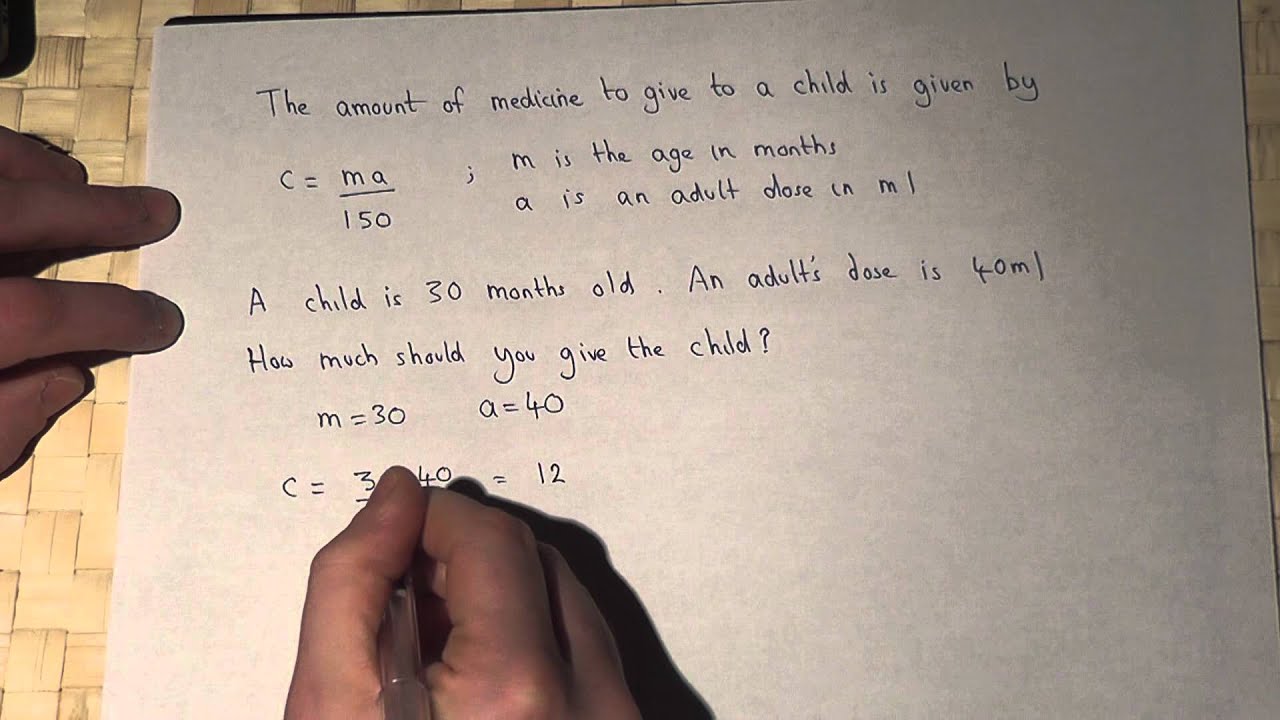 The amount of medicine to give to a child is given by
c = ma/150 ; m is the age in months
a is an adult dose in ml
A child is 30 months old. An adult's dose is 40ml
How much should you give the child?
m = 30 a = 40
c = 3 40 = 12